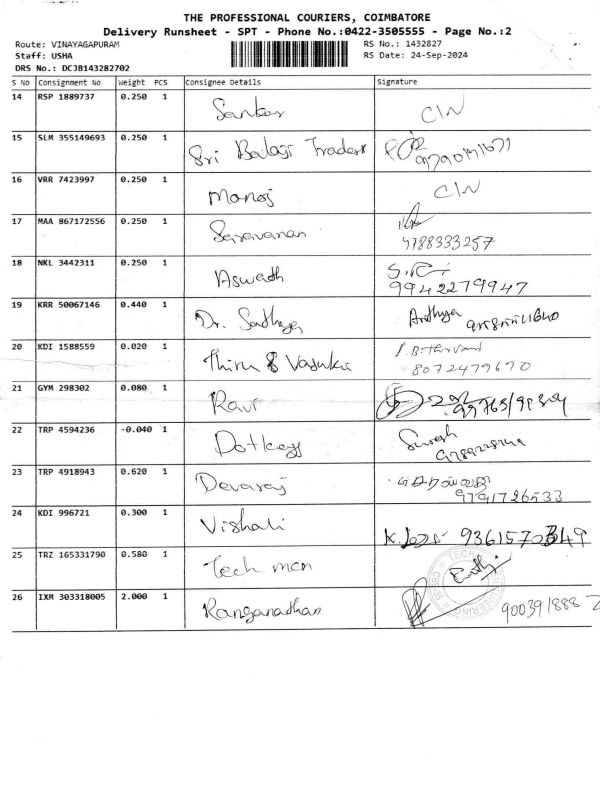 THE PROFESSIONAL COURIERS, COIMBATORE
Delivery Runsheet - SPT - Phone No.:0422-3505555 - Page No.:2
Route: VINAYAGAPURAM
Staff: USHA
DRS No.: DCJB143282702
RS No.: 1432827
RS Date: 24-Sep-2024
S No Consignment No Weight PCS Consignee Details Signature
14 RSP 1889737 0.250 1 Sankar C/N
15 SLM 355149693 0.250 1 Sri Balagi Traders
16 VRR 7423997 0.250 1 Manoj C/N
17 MAA 867172556 0.250 1 Saravanan
9788333257
18 NKL 3442311 0.250 1 Aswath
9942279947
19 KRR 50067146 0.440 1 Dr. Sathya
20 KDI 1588559 0.020 1 Thiru & Vasuki
8072479670
21 GYM 298302 0.080 1 Ravi
22 TRP 4594236 -0.040 1 Dotkegs Suresh
23 TRP 4918943 0.620 1 Devaraj
9791726533
24 KDI 996721 0.300 1 Vishali
25 TRZ 165331790 0.580 1 Tech men
26 IXM 303318005 2.000 1 Ranganathan